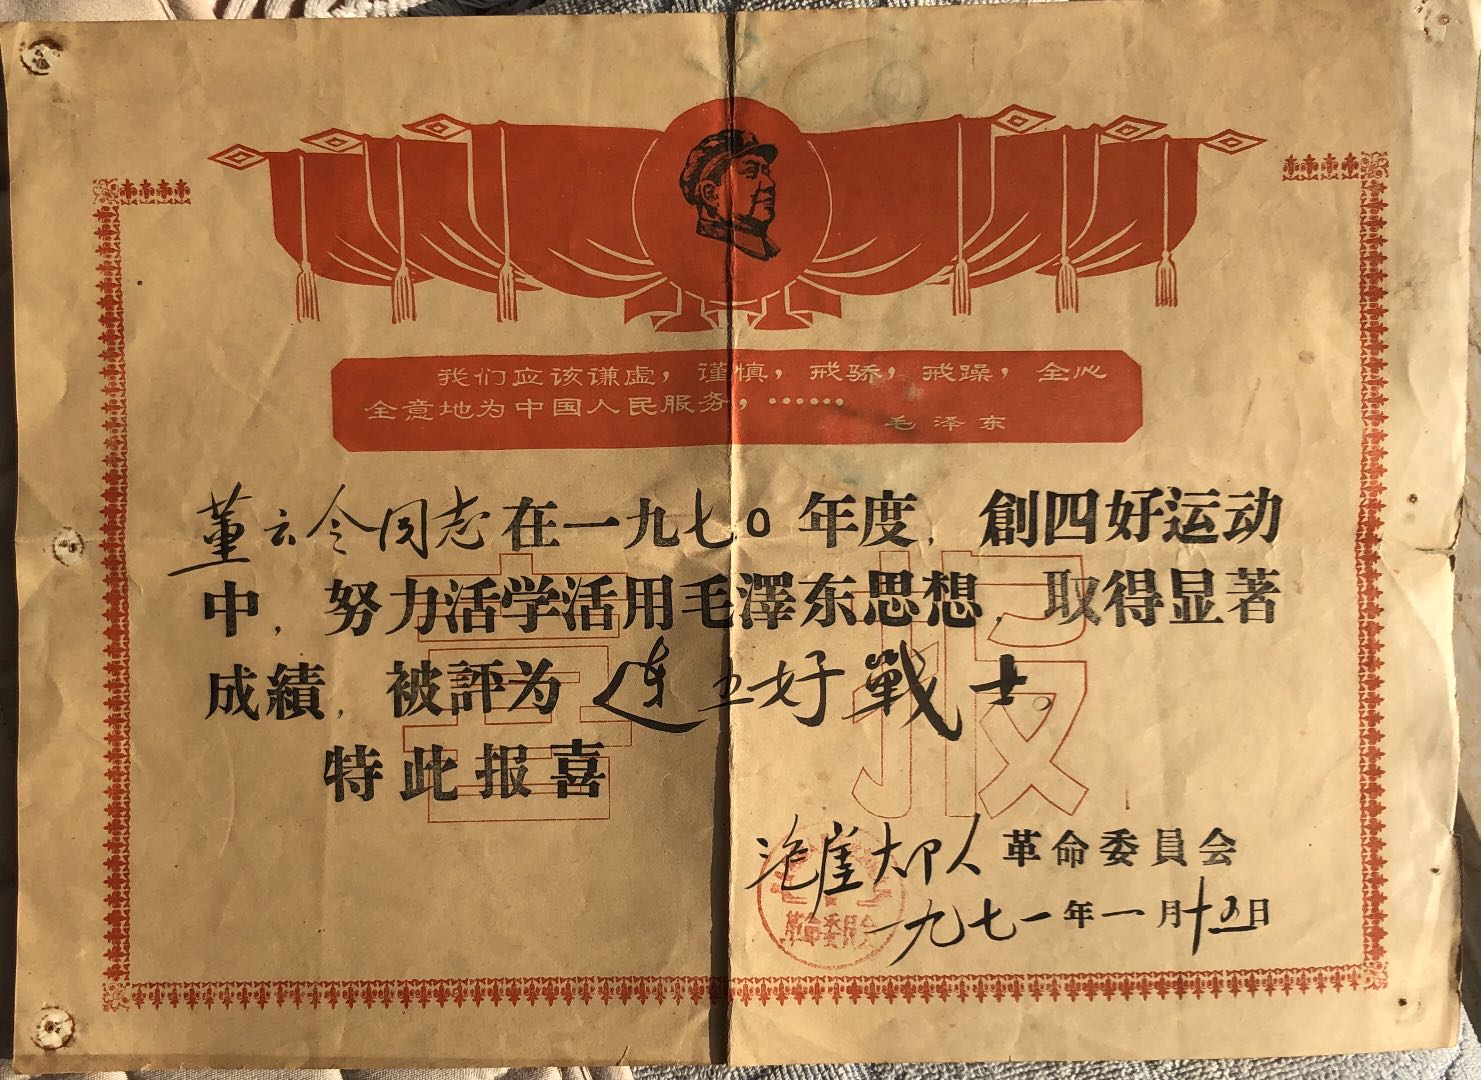 我们应该谦虚，谨慎，戒骄，戒躁，全心
全意地为中国人民服务，……
毛泽东
董云令同志在一九七0年度，創四好运动
中，努力活学活用毛澤东思想，取得显著
成績，被評为连五好戰士。
特此报喜
喜报
崖大队革命委員会
革命委員会
一九七一年一月十五日